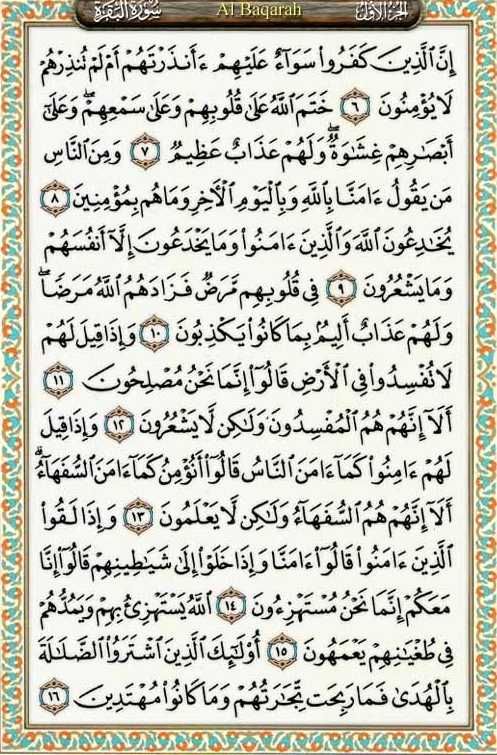 سُورَةُ البَقَرَةِ Al Baqarah الجزء الأول
إِنَّ ٱلَّذِينَ كَفَرُوا۟ سَوَآءٌ عَلَيْهِمْ ءَأَنذَرْتَهُمْ أَمْ لَمْ تُنذِرْهُمْ
لَا يُؤْمِنُونَ ٦ خَتَمَ ٱللَّهُ عَلَىٰ قُلُوبِهِمْ وَعَلَىٰ سَمْعِهِمْ ۖ وَعَلَىٰٓ
أَبْصَٰرِهِمْ غِشَٰوَةٌ ۖ وَلَهُمْ عَذَابٌ عَظِيمٌ ٧ وَمِنَ ٱلنَّاسِ
مَن يَقُولُ ءَامَنَّا بِٱللَّهِ وَبِٱلْيَوْمِ ٱلْءَاخِرِ وَمَا هُم بِمُؤْمِنِينَ ٨
يُخَٰدِعُونَ ٱللَّهَ وَٱلَّذِينَ ءَامَنُوا۟ وَمَا يَخْدَعُونَ إِلَّآ أَنفُسَهُمْ
وَمَا يَشْعُرُونَ ٩ فِى قُلُوبِهِم مَّرَضٌ فَزَادَهُمُ ٱللَّهُ مَرَضًا ۖ
وَلَهُمْ عَذَابٌ أَلِيمٌۢ بِمَا كَانُوا۟ يَكْذِبُونَ ١٠ وَإِذَا قِيلَ لَهُمْ
لَا تُفْسِدُوا۟ فِى ٱلْأَرْضِ قَالُوٓا۟ إِنَّمَا نَحْنُ مُصْلِحُونَ ١١
أَلَآ إِنَّهُمْ هُمُ ٱلْمُفْسِدُونَ وَلَٰكِن لَّا يَشْعُرُونَ ١٢ وَإِذَا قِيلَ
لَهُمْ ءَامِنُوا۟ كَمَآ ءَامَنَ ٱلنَّاسُ قَالُوٓا۟ أَنُؤْمِنُ كَمَآ ءَامَنَ ٱلسُّفَهَآءُ ۗ
أَلَآ إِنَّهُمْ هُمُ ٱلسُّفَهَآءُ وَلَٰكِن لَّا يَعْلَمُونَ ١٣ وَإِذَا لَقُوا۟
ٱلَّذِينَ ءَامَنُوا۟ قَالُوٓا۟ ءَامَنَّا وَإِذَا خَلَوْا۟ إِلَىٰ شَيَٰطِينِهِمْ قَالُوٓا۟ إِنَّا
مَعَكُمْ إِنَّمَا نَحْنُ مُسْتَهْزِءُونَ ١٤ ٱللَّهُ يَسْتَهْزِئُ بِهِمْ وَيَمُدُّهُمْ
فِى طُغْيَٰنِهِمْ يَعْمَهُونَ ١٥ أُو۟لَٰٓئِكَ ٱلَّذِينَ ٱشْتَرَوُا۟ ٱلضَّلَٰلَةَ
بِٱلْهُدَىٰ فَمَا رَبِحَت تِّجَٰرَتُهُمْ وَمَا كَانُوا۟ مُهْتَدِينَ ١٦